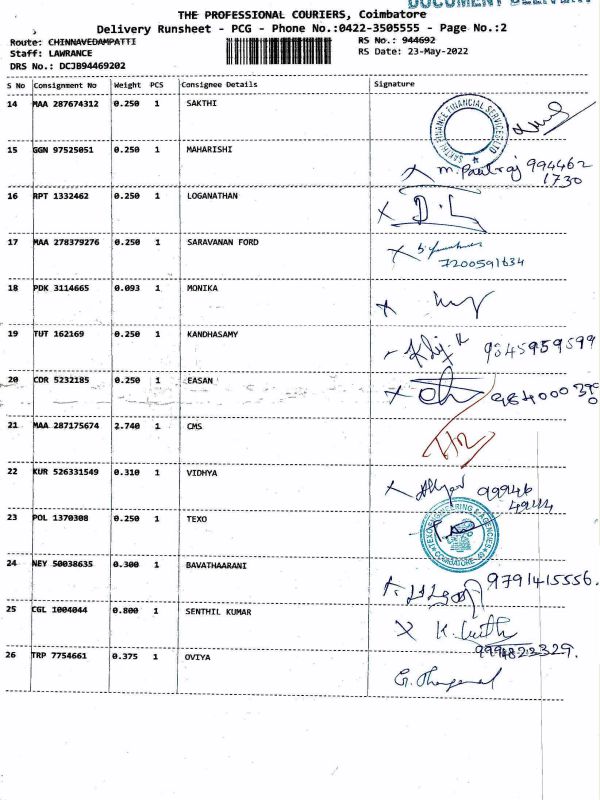 DOCUMENT DELIVERY
THE PROFESSIONAL COURIERS, Coimbatore
Delivery Runsheet - PCG - Phone No.:0422-3505555 - Page No.:2
Route: CHINNAVEDAMPATTI
RS No.: 944692
Staff: LAWRANCE
RS Date: 23-May-2022
DRS No.: DCJB94469202
S No Consignment No Weight PCS Consignee Details Signature
14 MAA 287674312 0.250 1 SAKTHI
SAKTHI FINANCE FINANCIAL SERVICES LTD
15 GGN 97525051 0.250 1 MAHARISHI
X m. Paulraj 994462
1730
16 RPT 1332462 0.250 1 LOGANATHAN
X D.L
17 MAA 278379276 0.250 1 SARAVANAN FORD
X
7200591634
18 PDK 3114665 0.093 1 MONIKA
X
19 TUT 162169 0.250 1 KANDHASAMY
9845959599
20 CDR 5232185 0.250 1 EASAN
X
21 MAA 287175674 2.740 1 CMS
22 KUR 526331549 0.310 1 VIDHYA
X 99946
23 POL 1370308 0.250 1 TEXO
TEXO ENGINEERING & AGENCIES
COIMBATORE
24 NEY 50038635 0.300 1 BAVATHAARANI
9791415556.
25 CGL 1004044 0.800 1 SENTHIL KUMAR
X K.
26 TRP 7754661 0.375 1 OVIYA